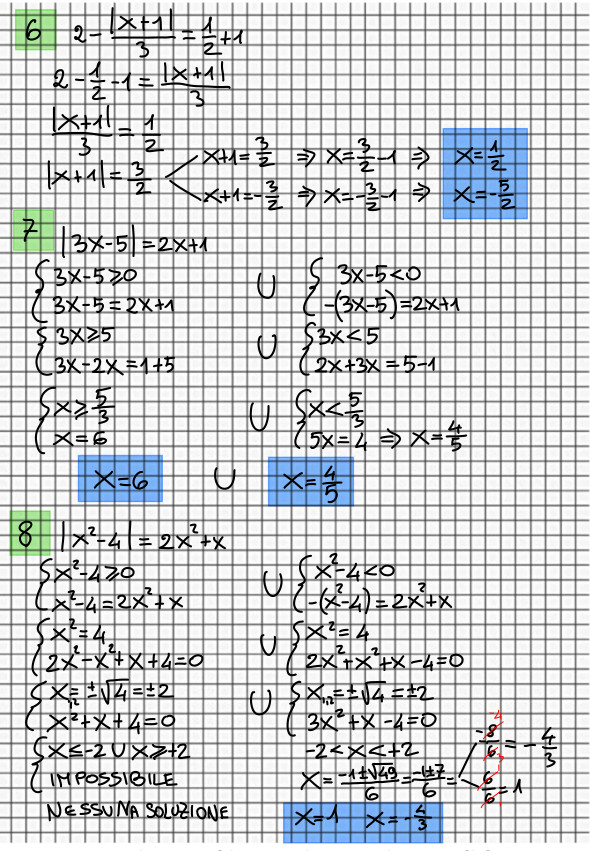 6 2-|x+1|/3=1/2+1
2-1/2-1=|x+1|/3
|x+1|/3=1/2
|x+1|=3/2 x+1=3/2 ⇒ x=3/2-1 ⇒ x=1/2
x+1=-3/2 ⇒ x=-3/2-1 ⇒ x=-5/2
7 |3x-5|=2x+1
{3x-5≥0 ∪ {3x-5<0
3x-5=2x+1 -(3x-5)=2x+1
{3x≥5 ∪ {3x<5
3x-2x=1+5 2x+3x=5-1
{x≥5/3 ∪ {x<5/3
x=6 5x=4 ⇒ x=4/5
x=6 ∪ x=4/5
8 |x²-4|=2x²+x
{x²-4≥0 ∪ {x²-4<0
x²-4=2x²+x -(x²-4)=2x²+x
{x²=4 ∪ {x²=4
2x²-x²+x+4=0 2x²+x²+x-4=0
{x₁,₂=±√4=±2 ∪ {x₁,₂=±√4=±2
x²+x+4=0 3x²+x-4=0
{x≤-2∪x≥+2 -2<x<+2
IMPOSSIBILE x=-1±√49/6=-1±7/6= -8/6 4 3=-4/3
6/6=1
NESSUNA SOLUZIONE x=1 x=-4/3